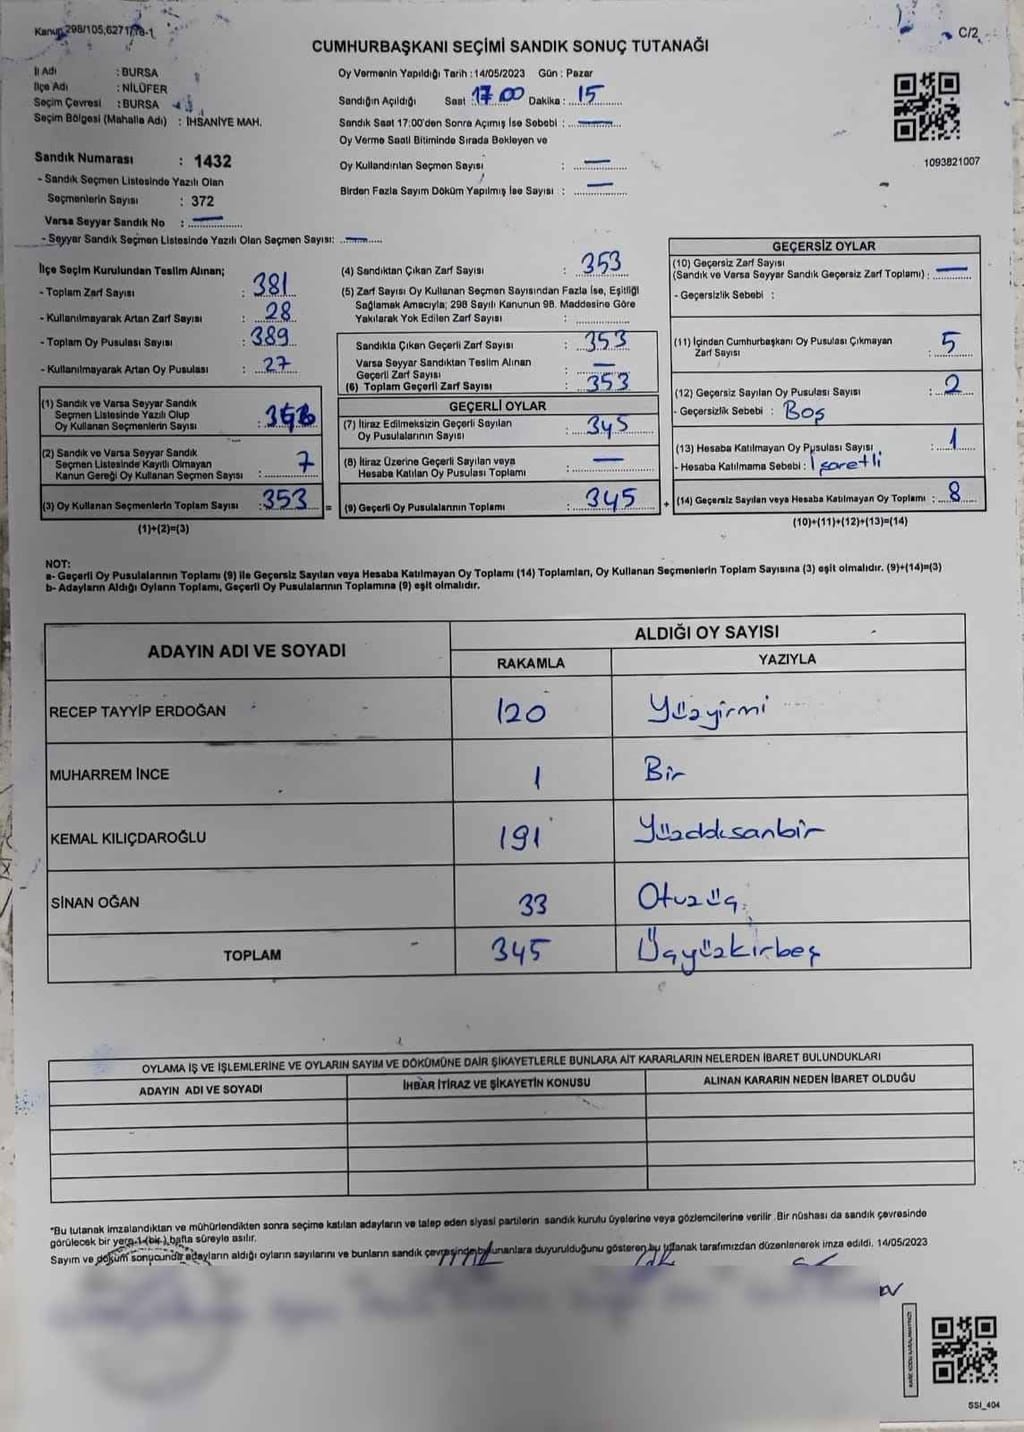 Kanun 298/105,6271/19-1
C/2
CUMHURBAŞKANI SEÇİMİ SANDIK SONUÇ TUTANAĞI
İl Adı : BURSA
İlçe Adı : NİLÜFER
Seçim Çevresi : BURSA
Seçim Bölgesi (Mahalle Adı) : İHSANİYE MAH.
Sandık Numarası : 1432
- Sandık Seçmen Listesinde Yazılı Olan
Seçmenlerin Sayısı : 372
Varsa Seyyar Sandık No : —
- Seyyar Sandık Seçmen Listesinde Yazılı Olan Seçmen Sayısı: —
Oy Vermenin Yapıldığı Tarih : 14/05/2023 Gün : Pazar
Sandığın Açıldığı Saat : 17 00 Dakika : 15
Sandık Saat 17:00'den Sonra Açımış İse Sebebi : —
Oy Verme Saati Bitiminde Sırada Bekleyen ve
Oy Kullandırılan Seçmen Sayısı : —
Birden Fazla Sayım Döküm Yapılmış İse Sayısı : —
1093821007
İlçe Seçim Kurulundan Teslim Alınan;
- Toplam Zarf Sayısı : 381
- Kullanılmayarak Artan Zarf Sayısı : 28
- Toplam Oy Pusulası Sayısı : 389
- Kullanılmayarak Artan Oy Pusulası : 27
(1) Sandık ve Varsa Seyyar Sandık
Seçmen Listesinde Yazılı Olup
Oy Kullanan Seçmenlerin Sayısı :
(2) Sandık ve Varsa Seyyar Sandık
Seçmen Listesinde Kayıtlı Olmayan
Kanun Gereği Oy Kullanan Seçmen Sayısı : 7
(3) Oy Kullanan Seçmenlerin Toplam Sayısı : 353 =
(1)+(2)=(3)
(4) Sandıktan Çıkan Zarf Sayısı : 353
(5) Zarf Sayısı Oy Kullanan Seçmen Sayısından Fazla İse, Eşitliği
Sağlamak Amacıyla; 298 Sayılı Kanunun 98. Maddesine Göre
Yakılarak Yok Edilen Zarf Sayısı :
Sandıkta Çıkan Geçerli Zarf Sayısı : 353
Varsa Seyyar Sandıktan Teslim Alınan
Geçerli Zarf Sayısı : —
(6) Toplam Geçerli Zarf Sayısı : 353
GEÇERLİ OYLAR
(7) İtiraz Edilmeksizin Geçerli Sayılan
Oy Pusulalarının Sayısı : 345
(8) İtiraz Üzerine Geçerli Sayılan veya
Hesaba Katılan Oy Pusulası Toplamı : —
(9) Geçerli Oy Pusulalarının Toplamı : 345 +
GEÇERSİZ OYLAR
(10) Geçersiz Zarf Sayısı
(Sandık ve Varsa Seyyar Sandık Geçersiz Zarf Toplamı) : —
- Geçersizlik Sebebi :
(11) İçinden Cumhurbaşkanı Oy Pusulası Çıkmayan
Zarf Sayısı : 5
(12) Geçersiz Sayılan Oy Pusulası Sayısı : 2
- Geçersizlik Sebebi : Boş
(13) Hesaba Katılmayan Oy Pusulası Sayısı : 1
- Hesaba Katılmama Sebebi : İşaretli
(14) Geçersiz Sayılan veya Hesaba Katılmayan Oy Toplamı : 8
(10)+(11)+(12)+(13)=(14)
NOT:
a- Geçerli Oy Pusulalarının Toplamı (9) ile Geçersiz Sayılan veya Hesaba Katılmayan Oy Toplamı (14) Toplamları, Oy Kullanan Seçmenlerin Toplam Sayısına (3) eşit olmalıdır. (9)+(14)=(3)
b- Adayların Aldığı Oyların Toplamı, Geçerli Oy Pusulalarının Toplamına (9) eşit olmalıdır.
ADAYIN ADI VE SOYADI
ALDIĞI OY SAYISI
RAKAMLA YAZIYLA
RECEP TAYYİP ERDOĞAN 120 Yüzyirmi
MUHARREM İNCE 1 Bir
KEMAL KILIÇDAROĞLU 191 Yüzddksanbir
SİNAN OĞAN 33 Otuzüç
TOPLAM 345 Üçyüzkırbeş
OYLAMA İŞ VE İŞLEMLERİNE VE OYLARIN SAYIM VE DÖKÜMÜNE DAİR ŞİKAYETLERLE BUNLARA AİT KARARLARIN NELERDEN İBARET BULUNDUKLARI
ADAYIN ADI VE SOYADI İHBAR İTİRAZ VE ŞİKAYETİN KONUSU ALINAN KARARIN NEDEN İBARET OLDUĞU
*Bu tutanak imzalandıktan ve mühürlendikten sonra seçime katılan adayların ve talep eden siyasi partilerin sandık kurulu üyelerine veya gözlemcilerine verilir. Bir nüshası da sandık çevresinde
görülecek bir yere 1 (bir) hafta süreyle asılır.
Sayım ve döküm sonucunda adayların aldığı oyların sayılarını ve bunların sandık çevresinde bulunanlara duyurulduğunu gösteren bu tutanak tarafımızdan düzenlenerek imza edildi. 14/05/2023
SSI_404